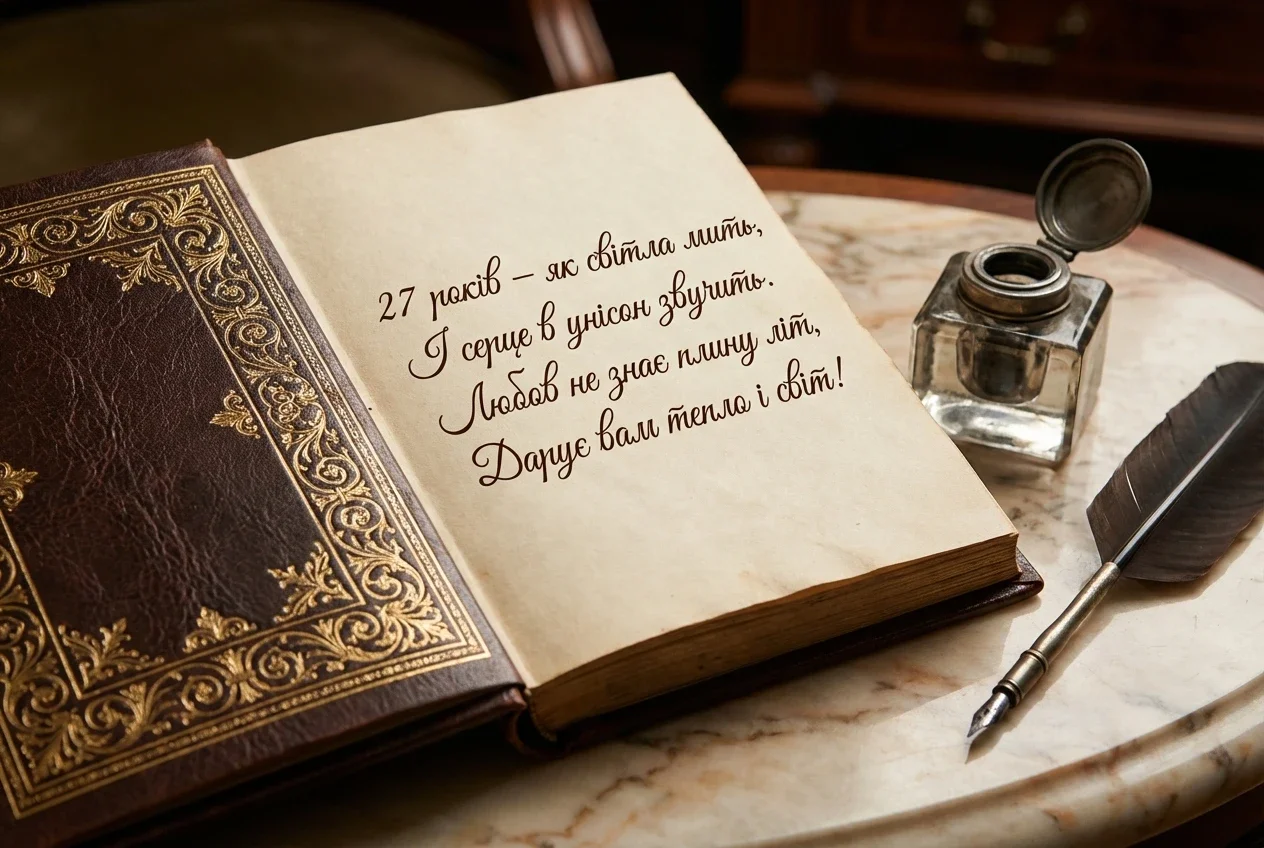 27 років – як світла мить,
І серце в унісон звучить.
Любов не знає плину літ,
Дарує вам тепло і світ!